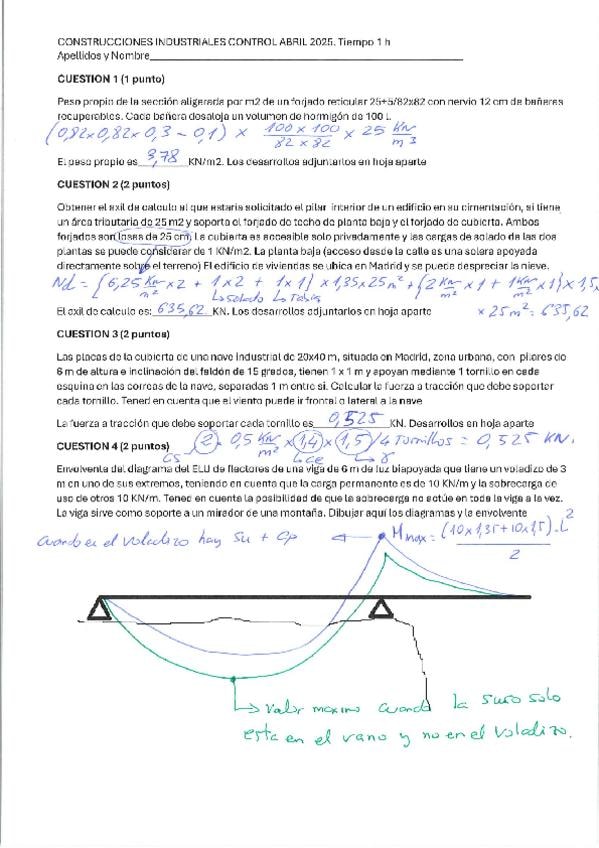 CONSTRUCCIONES INDUSTRIALES CONTROL ABRIL 2025. Tiempo 1 h
Apellidos y Nombre
CUESTION 1 (1 punto)
Peso propio de la sección aligerada por m2 de un forjado reticular 25+5/82x82 con nervio 12 cm de bañeras
recuperables. Cada bañera desaloja un volumen de hormigón de 100 L
(0,82x0,82x0,3 - 0,1) x 100 x 100 / 82 x 82 x 25 KN/m3
El peso propio es 3,78 KN/m2. Los desarrollos adjuntarlos en hoja aparte
CUESTION 2 (2 puntos)
Obtener el axil de calculo al que estaría solicitado el pilar interior de un edificio en su cimentación, si tiene
un área tributaria de 25 m2 y soporta el forjado de techo de planta baja y el forjado de cubierta. Ambos
forjados son losas de 25 cm. La cubierta es accesible solo privadamente y las cargas de solado de las dos
plantas se puede considerar de 1 KN/m2. La planta baja (acceso desde la calle es una solera apoyada
directamente sobre el terreno) El edificio de viviendas se ubica en Madrid y se puede despreciar la nieve.
Nd = [6,25 KN/m2 x 2 + 1 x 2 + 1 x 1] x 1,35 x 25 m2 + [2 KN/m2 x 1 + 1 KN/m2 x 1] x 1,5 x
↳ Solado ↳ Tabiq
El axil de calculo es: 635,62 KN. Los desarrollos adjuntarlos en hoja aparte x 25 m2 = 635,62
CUESTION 3 (2 puntos)
Las placas de la cubierta de una nave industrial de 20x40 m, situada en Madrid, zona urbana, con pilares de
6 m de altura e inclinación del faldón de 15 grados, tienen 1 x 1 m y apoyan mediante 1 tornillo en cada
esquina en las correas de la nave, separadas 1 m entre si. Calcular la fuerza a tracción que debe soportar
cada tornillo. Tened en cuenta que el viento puede ir frontal o lateral a la nave
La fuerza a tracción que debe soportar cada tornillo es 0,525 KN. Desarrollos en hoja aparte
CUESTION 4 (2 puntos) Cs 2 x 0,5 KN/m2 x 1,4 x 1,5 / 4 Tornillos = 0,525 KN.
↳ Ce ↳ γ
Envolvente del diagrama del ELU de flectores de una viga de 6 m de luz biapoyada que tiene un voladizo de 3
m en uno de sus extremos, teniendo en cuenta que la carga permanente es de 10 KN/m y la sobrecarga de
uso de otros 10 KN/m. Tened en cuenta la posibilidad de que la sobrecarga no actúe en toda la viga a la vez.
La viga sirve como soporte a un mirador de una montaña. Dibujar aquí los diagramas y la envolvente
cuando en el voladizo hay Su + Cp ← M max = (10x1,35+10x1,5)·L2 / 2
↳ valor maximo cuando la suso solo
esta en el vano y no en el voladizo.